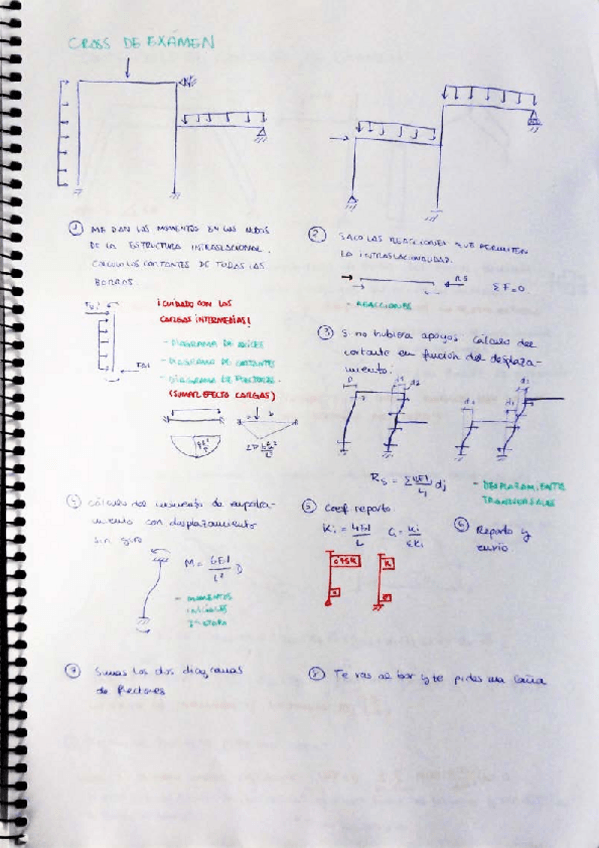 CROSS DE EXÁMEN
① ME DAN LOS MOMENTOS EN LOS NUDOS
DE LA ESTRUCTURA INTRASLACIONAL.
CALCULO LOS CORTANTES DE TODAS LAS
BARRAS.
¡CUIDADO CON LAS
CARGAS INTERMEDIAS!
- DIAGRAMA DE AXILES
- DIAGRAMA DE CORTANTES
- DIAGRAMA DE FLECTORES.
(SUMAR EFECTO CARGAS)
② SACO LAS REACCIONES QUE PERMITEN
LA INTRASLACIONALIDAD.
RS ΣF=0.
- REACCIONES
③ Si no hubiera apoyos cálculo del
cortante en función del desplaza-
miento.
- DESPLAZAMIENTOS
TRANSVERSALES
④ Cálculo del momento de empotra-
miento con desplazamiento
sin giro
M = 6EI/L² D
- MOMENTOS
⑤ Coef. reparto
Ki = 4EI/L Ci = Ki/ΣKi
0'75K K
⑥ Reparto y
envío
⑦ Sumas los dos diagramas
de flectores
⑧ Te vas al bar y te pides una caña